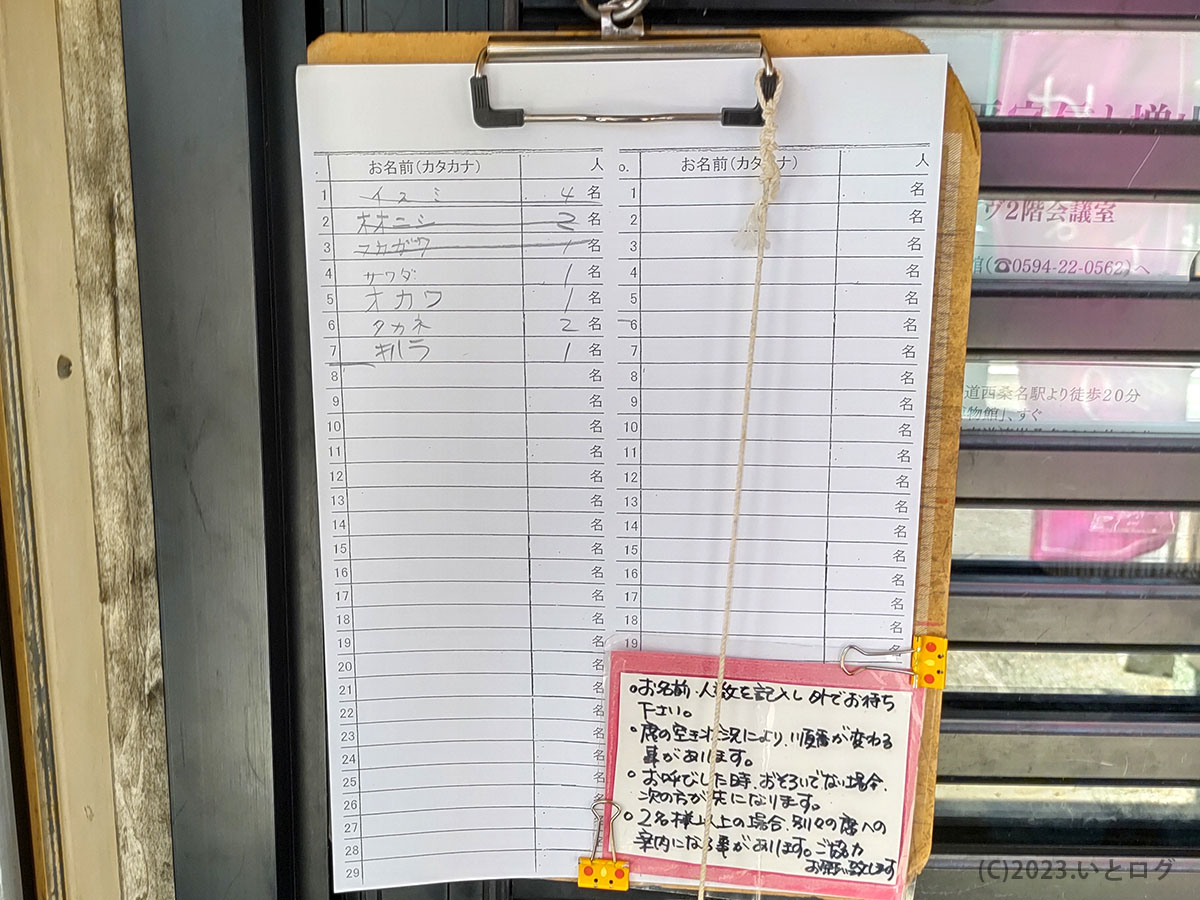 . お名前(カタカナ) 人
1 イズミ 4 名
2 オオニシ 2 名
3 ナカガワ 1 名
4 サワダ 1 名
5 オカワ 1 名
6 タカネ 2 名
7 キハラ 1 名
8 名
9 名
10 名
11 名
12 名
13 名
14 名
15 名
16 名
17 名
18 名
19 名
20 名
21 名
22 名
23 名
24 名
25 名
26
27
28
29
o. お名前(カタカナ) 人
1 名
2 名
3 名
4 名
5 名
6 名
7 名
8 名
9 名
10 名
11 名
12 名
13 名
14 名
15 名
16 名
17 名
18 名
19 名
○お名前、人数を記入し外でお待ち
下さい。
○席の空き状況により、順番が変わる
事があります。
○お呼びした時、おそろいでない場合、
次の方が先になります。
○2名様以上の場合、別々の席への
案内になる事があります。ご協力
お願い致します
ヴ2階会議室
館(☎0594-22-0562)へ
道西桑名駅より徒歩20分
物館」、すぐ
(C)2023.いとログ